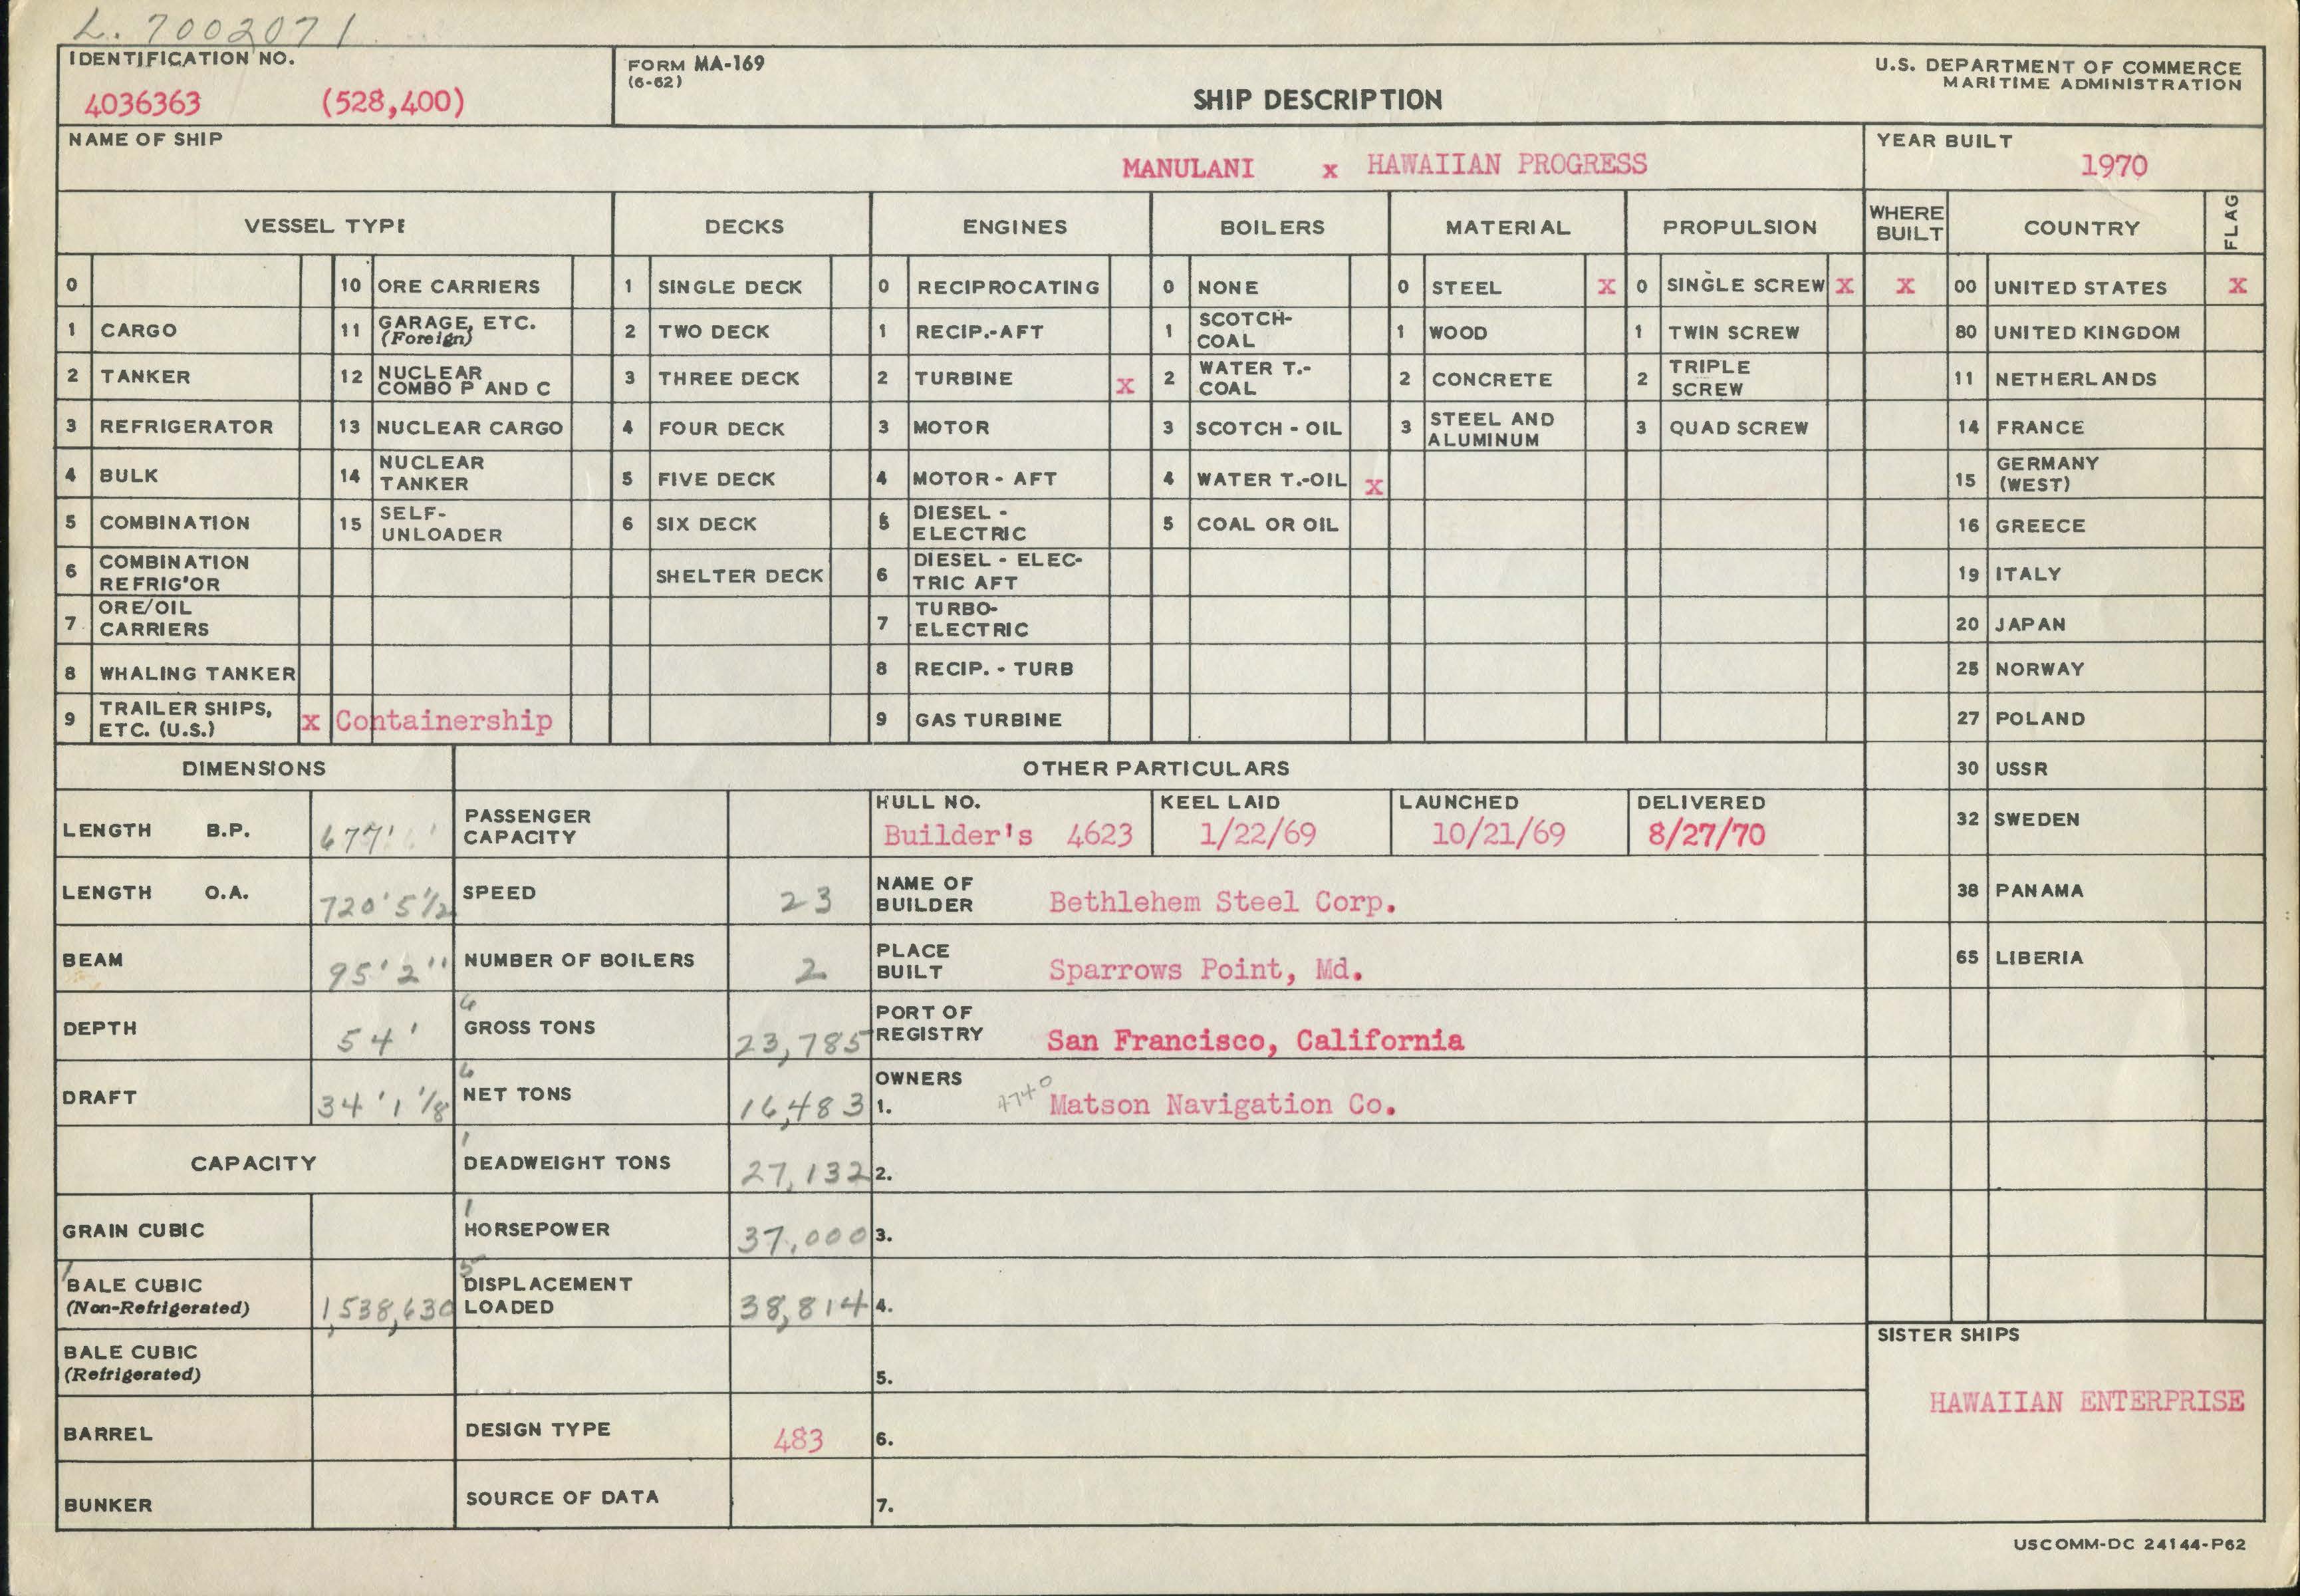 L. 7002071
IDENTIFICATION NO.
4036363 (528,400)
FORM MA-169
(6-62)
SHIP DESCRIPTION
U.S. DEPARTMENT OF COMMERCE
MARITIME ADMINISTRATION
NAME OF SHIP
MANULANI x HAWAIIAN PROGRESS
YEAR BUILT
1970
VESSEL TYPE DECKS ENGINES BOILERS MATERIAL PROPULSION WHERE BUILT COUNTRY FLAG
0 10 ORE CARRIERS 1 SINGLE DECK 0 RECIPROCATING 0 NONE 0 STEEL X 0 SINGLE SCREW X X 00 UNITED STATES X
1 CARGO 11 GARAGE, ETC. (Foreign) 2 TWO DECK 1 RECIP.-AFT 1 SCOTCH-COAL 1 WOOD 1 TWIN SCREW 80 UNITED KINGDOM
2 TANKER 12 NUCLEAR COMBO P AND C 3 THREE DECK 2 TURBINE X 2 WATER T.-COAL 2 CONCRETE 2 TRIPLE SCREW 11 NETHERLANDS
3 REFRIGERATOR 13 NUCLEAR CARGO 4 FOUR DECK 3 MOTOR 3 SCOTCH - OIL 3 STEEL AND ALUMINUM 3 QUAD SCREW 14 FRANCE
4 BULK 14 NUCLEAR TANKER 5 FIVE DECK 4 MOTOR - AFT 4 WATER T.-OIL X 15 GERMANY (WEST)
5 COMBINATION 15 SELF-UNLOADER 6 SIX DECK 5 DIESEL - ELECTRIC 5 COAL OR OIL 16 GREECE
6 COMBINATION REFRIG'OR SHELTER DECK 6 DIESEL - ELECTRIC AFT 19 ITALY
7 ORE/OIL CARRIERS 7 TURBO-ELECTRIC 20 JAPAN
8 WHALING TANKER 8 RECIP. - TURB 25 NORWAY
9 TRAILER SHIPS, ETC. (U.S.) x Containership 9 GAS TURBINE 27 POLAND
DIMENSIONS OTHER PARTICULARS 30 USSR
LENGTH B.P. 677' PASSENGER CAPACITY
HULL NO. KEEL LAID LAUNCHED DELIVERED
Builder's 4623 1/22/69 10/21/69 8/27/70
32 SWEDEN
LENGTH O.A. 720'5 1/2 SPEED 23 NAME OF BUILDER Bethlehem Steel Corp. 38 PANAMA
BEAM 95'2" NUMBER OF BOILERS 2 PLACE BUILT Sparrows Point, Md. 65 LIBERIA
DEPTH 54' 6 GROSS TONS 23,785 PORT OF REGISTRY San Francisco, California
DRAFT 34'1 1/8 6 NET TONS 16,483 OWNERS
1. 4740 Matson Navigation Co.
CAPACITY 1 DEADWEIGHT TONS 27,132 2.
GRAIN CUBIC 1 HORSEPOWER 37,000 3.
1 BALE CUBIC (Non-Refrigerated) 1,538,630 5 DISPLACEMENT LOADED 38,814 4.
BALE CUBIC (Refrigerated) 5.
SISTER SHIPS
HAWAIIAN ENTERPRISE
BARREL DESIGN TYPE 483 6.
BUNKER SOURCE OF DATA 7.
USCOMM-DC 24144-P62